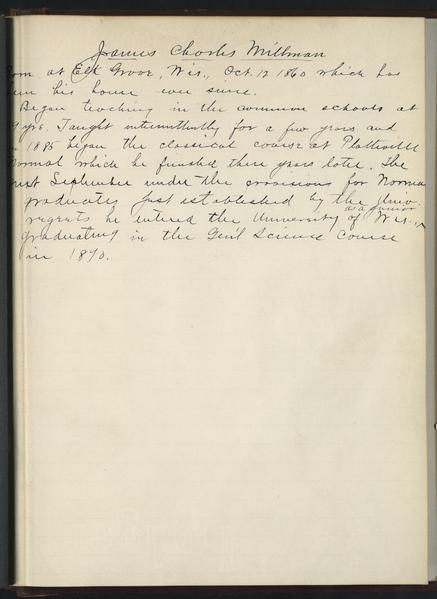 James Charles Millman
Born at Elk Grove, Wis., Oct. 12 1860 which has
been his home ever since.
Began teaching in the common schools at
19 yrs. Taught intermittently for a few years and
in 1885 began the classical course at Platteville
Normal which he finished three years later. The
next September under the provisions for Normal
graduates just established by the Univ.
regents he entered the University of Wis., as a junior
graduating in the Gen'l Science Course
in 1890.